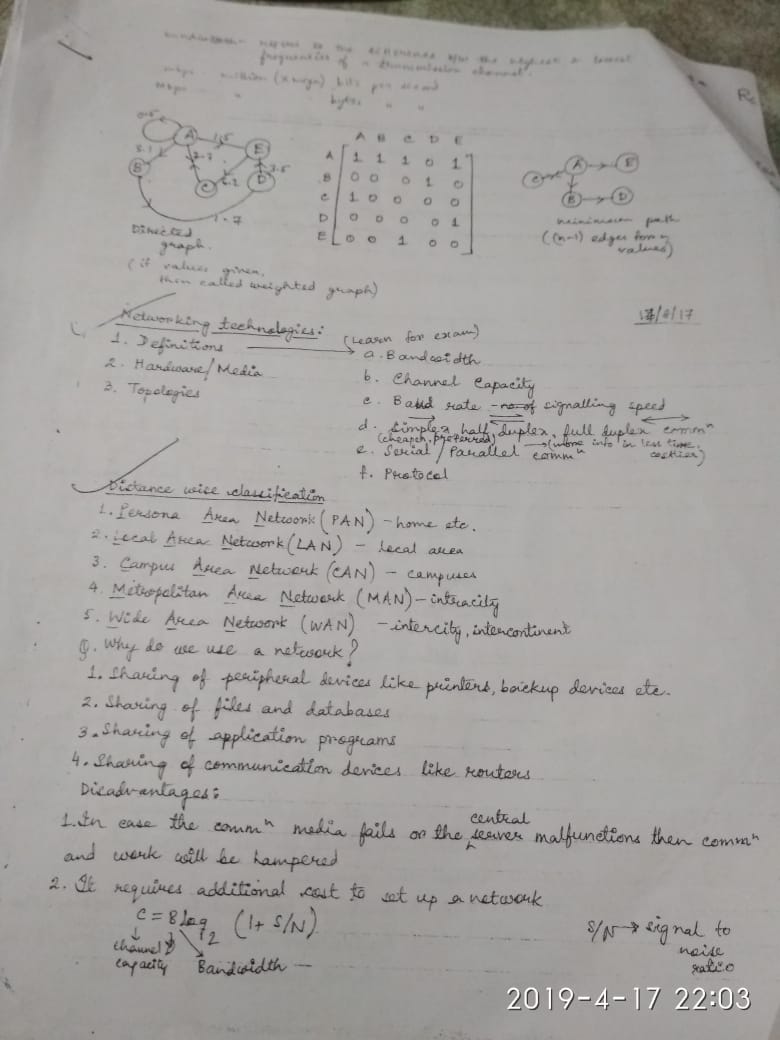 Bandwidth - refers to the difference b/w the highest & lowest
frequencies of a transmission channel.
mbps - million (x mega) bits per second
Mbps " bytes " "
Re
0.5
A 1.5 E
3.1 2.7
B C D
1.7
A B C D E
A 1 1 1 0 1
B 0 0 0 1 0
C 1 0 0 0 0
D 0 0 0 0 1
E 0 0 1 0 0
A E
C
B D
Directed
graph.
(if values given,
then called weighted graph)
minimum path
((n-1) edges for n
values)
17/4/17
Networking technologies: (Learn for exam)
1. Definitions
2. Hardware/Media
3. Topologies
a. Bandwidth
b. Channel Capacity
c. Baud rate - no. of signalling speed
d. Simplex, half duplex, full duplex commⁿ
(cheaper, preferred) (more info in less time, costlier)
e. Serial / Parallel commⁿ
f. Protocol
Distance wise classification
1. Persona Area Network (PAN) - home etc.
2. Local Area Network (LAN) - Local area
3. Campus Area Network (CAN) - campuses
4. Metropolitan Area Network (MAN) - intracity
5. Wide Area Network (WAN) - intercity, intercontinent
Q. Why do we use a network?
1. Sharing of peripheral devices like printers, backup devices etc.
2. Sharing of files and databases
3. Sharing of application programs
4. Sharing of communication devices like routers
Disadvantages:
1. In case the commⁿ media fails or the central server malfunctions then commⁿ
and work will be hampered
2. It requires additional cost to set up a network
C = B log₂ (1 + S/N)
channel
capacity
Bandwidth -
S/N → signal to
noise
ratio
2019-4-17 22:03